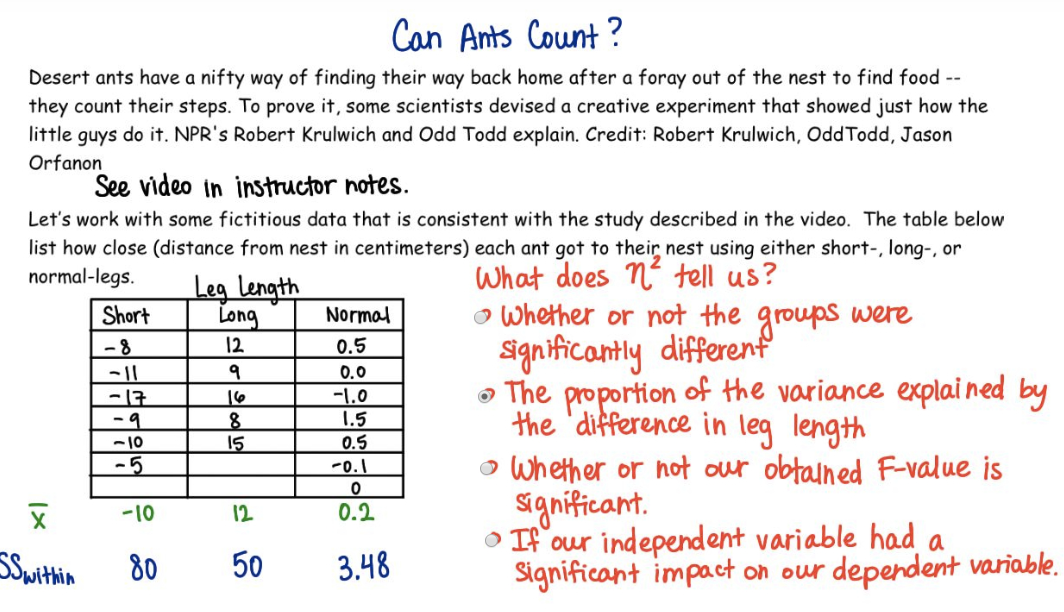 Can Ants Count?
Desert ants have a nifty way of finding their way back home after a foray out of the nest to find food --
they count their steps. To prove it, some scientists devised a creative experiment that showed just how the
little guys do it. NPR's Robert Krulwich and Odd Todd explain. Credit: Robert Krulwich, OddTodd, Jason
Orfanon
See video in instructor notes.
Let's work with some fictitious data that is consistent with the study described in the video. The table below
list how close (distance from nest in centimeters) each ant got to their nest using either short-, long-, or
normal-legs.
Leg Length
Short Long Normal
-8 12 0.5
-11 9 0.0
-17 16 -1.0
-9 8 1.5
-10 15 0.5
-5 -0.1
0
x̄ -10 12 0.2
SSwithin 80 50 3.48
What does η² tell us?
Whether or not the groups were
significantly different
The proportion of the variance explained by
the difference in leg length
Whether or not our obtained F-value is
significant.
If our independent variable had a
significant impact on our dependent variable.